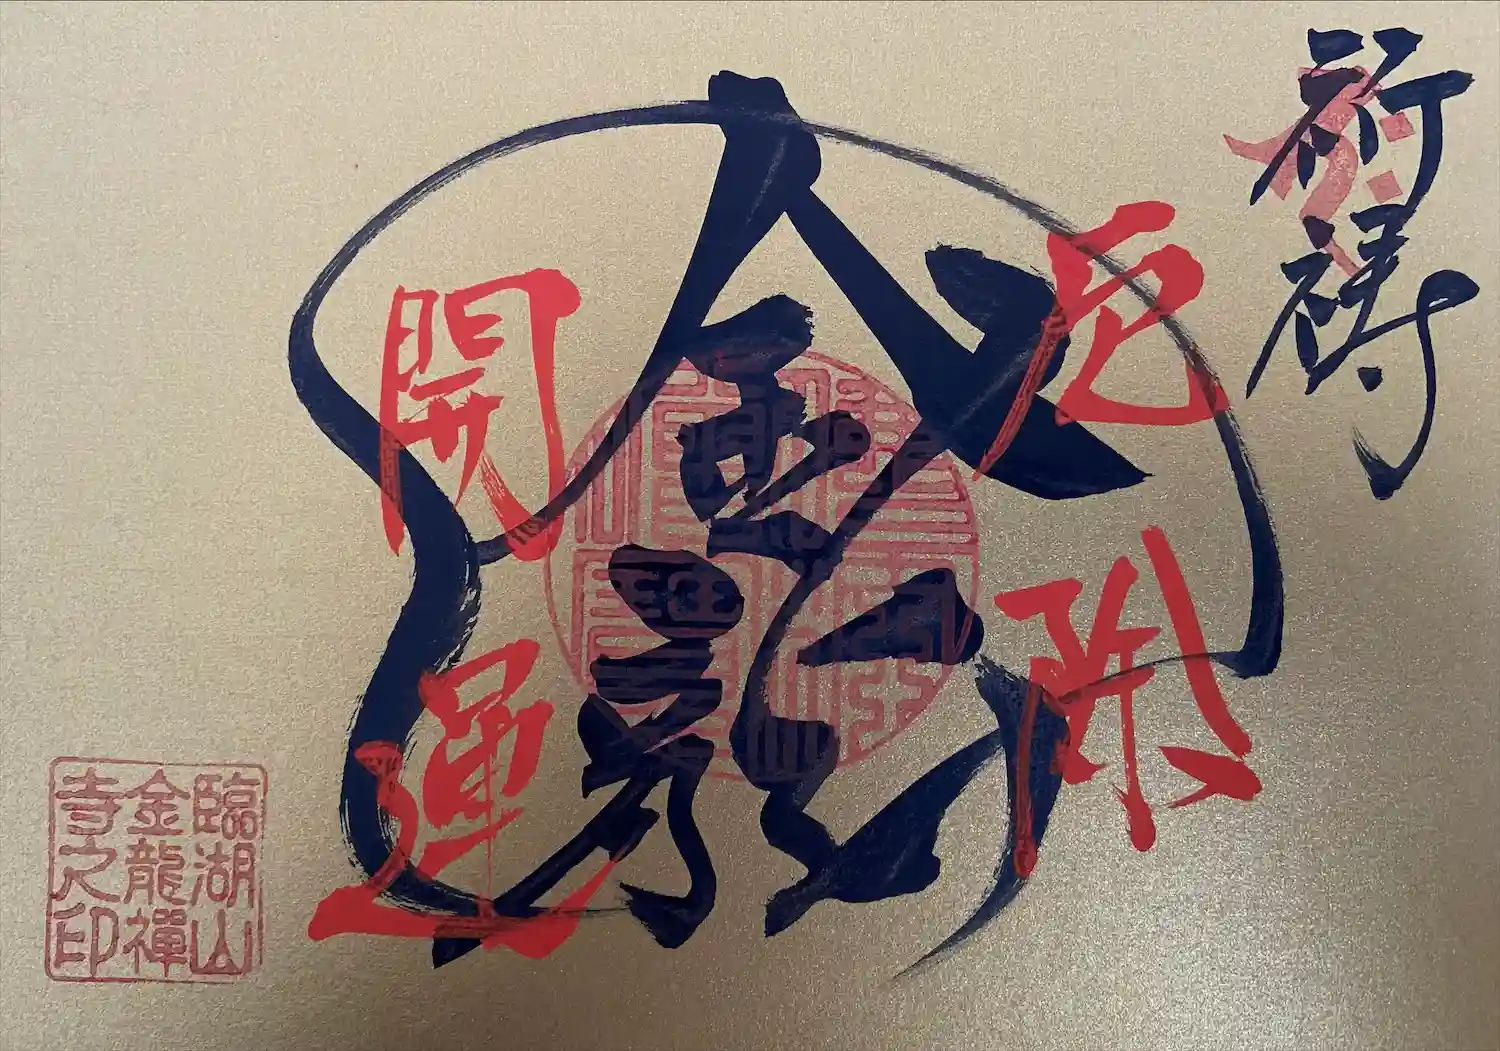 祈祷
厄除
金龍
開運
臨湖山
金龍禪
寺之印